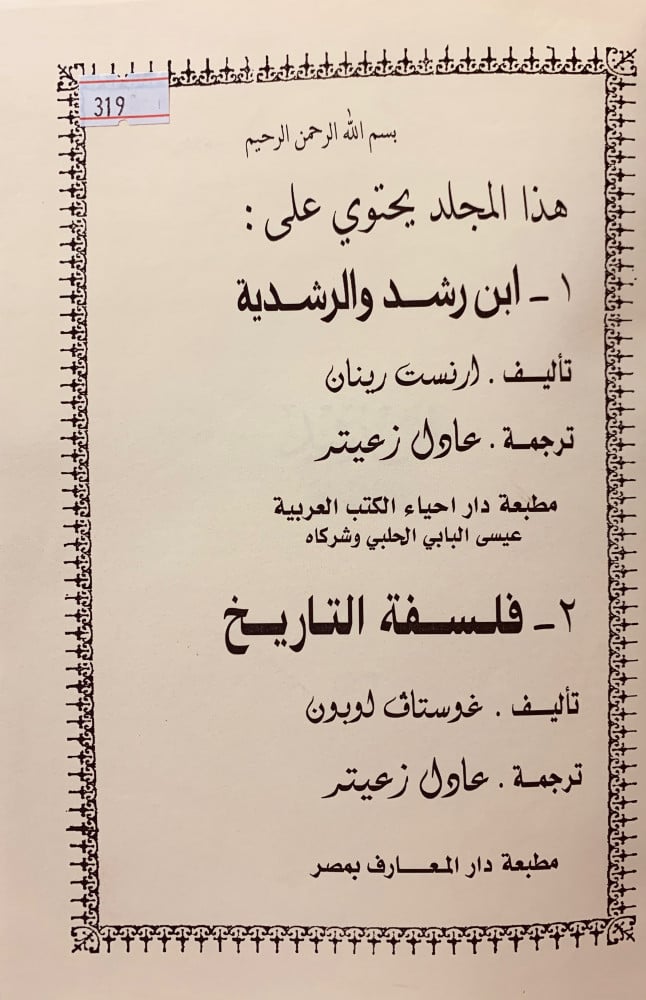 319
بسم الله الرحمن الرحيم
هذا المجلد يحتوي على :
١ - ابن رشد والرشدية
تأليف . ارنست رينان
ترجمة . عادل زعيتر
مطبعة دار احياء الكتب العربية
عيسى البابي الحلبي وشركاه
٢ - فلسفة التاريخ
تأليف . غوستاف لوبون
ترجمة . عادل زعيتر
مطبعة دار المعارف بمصر